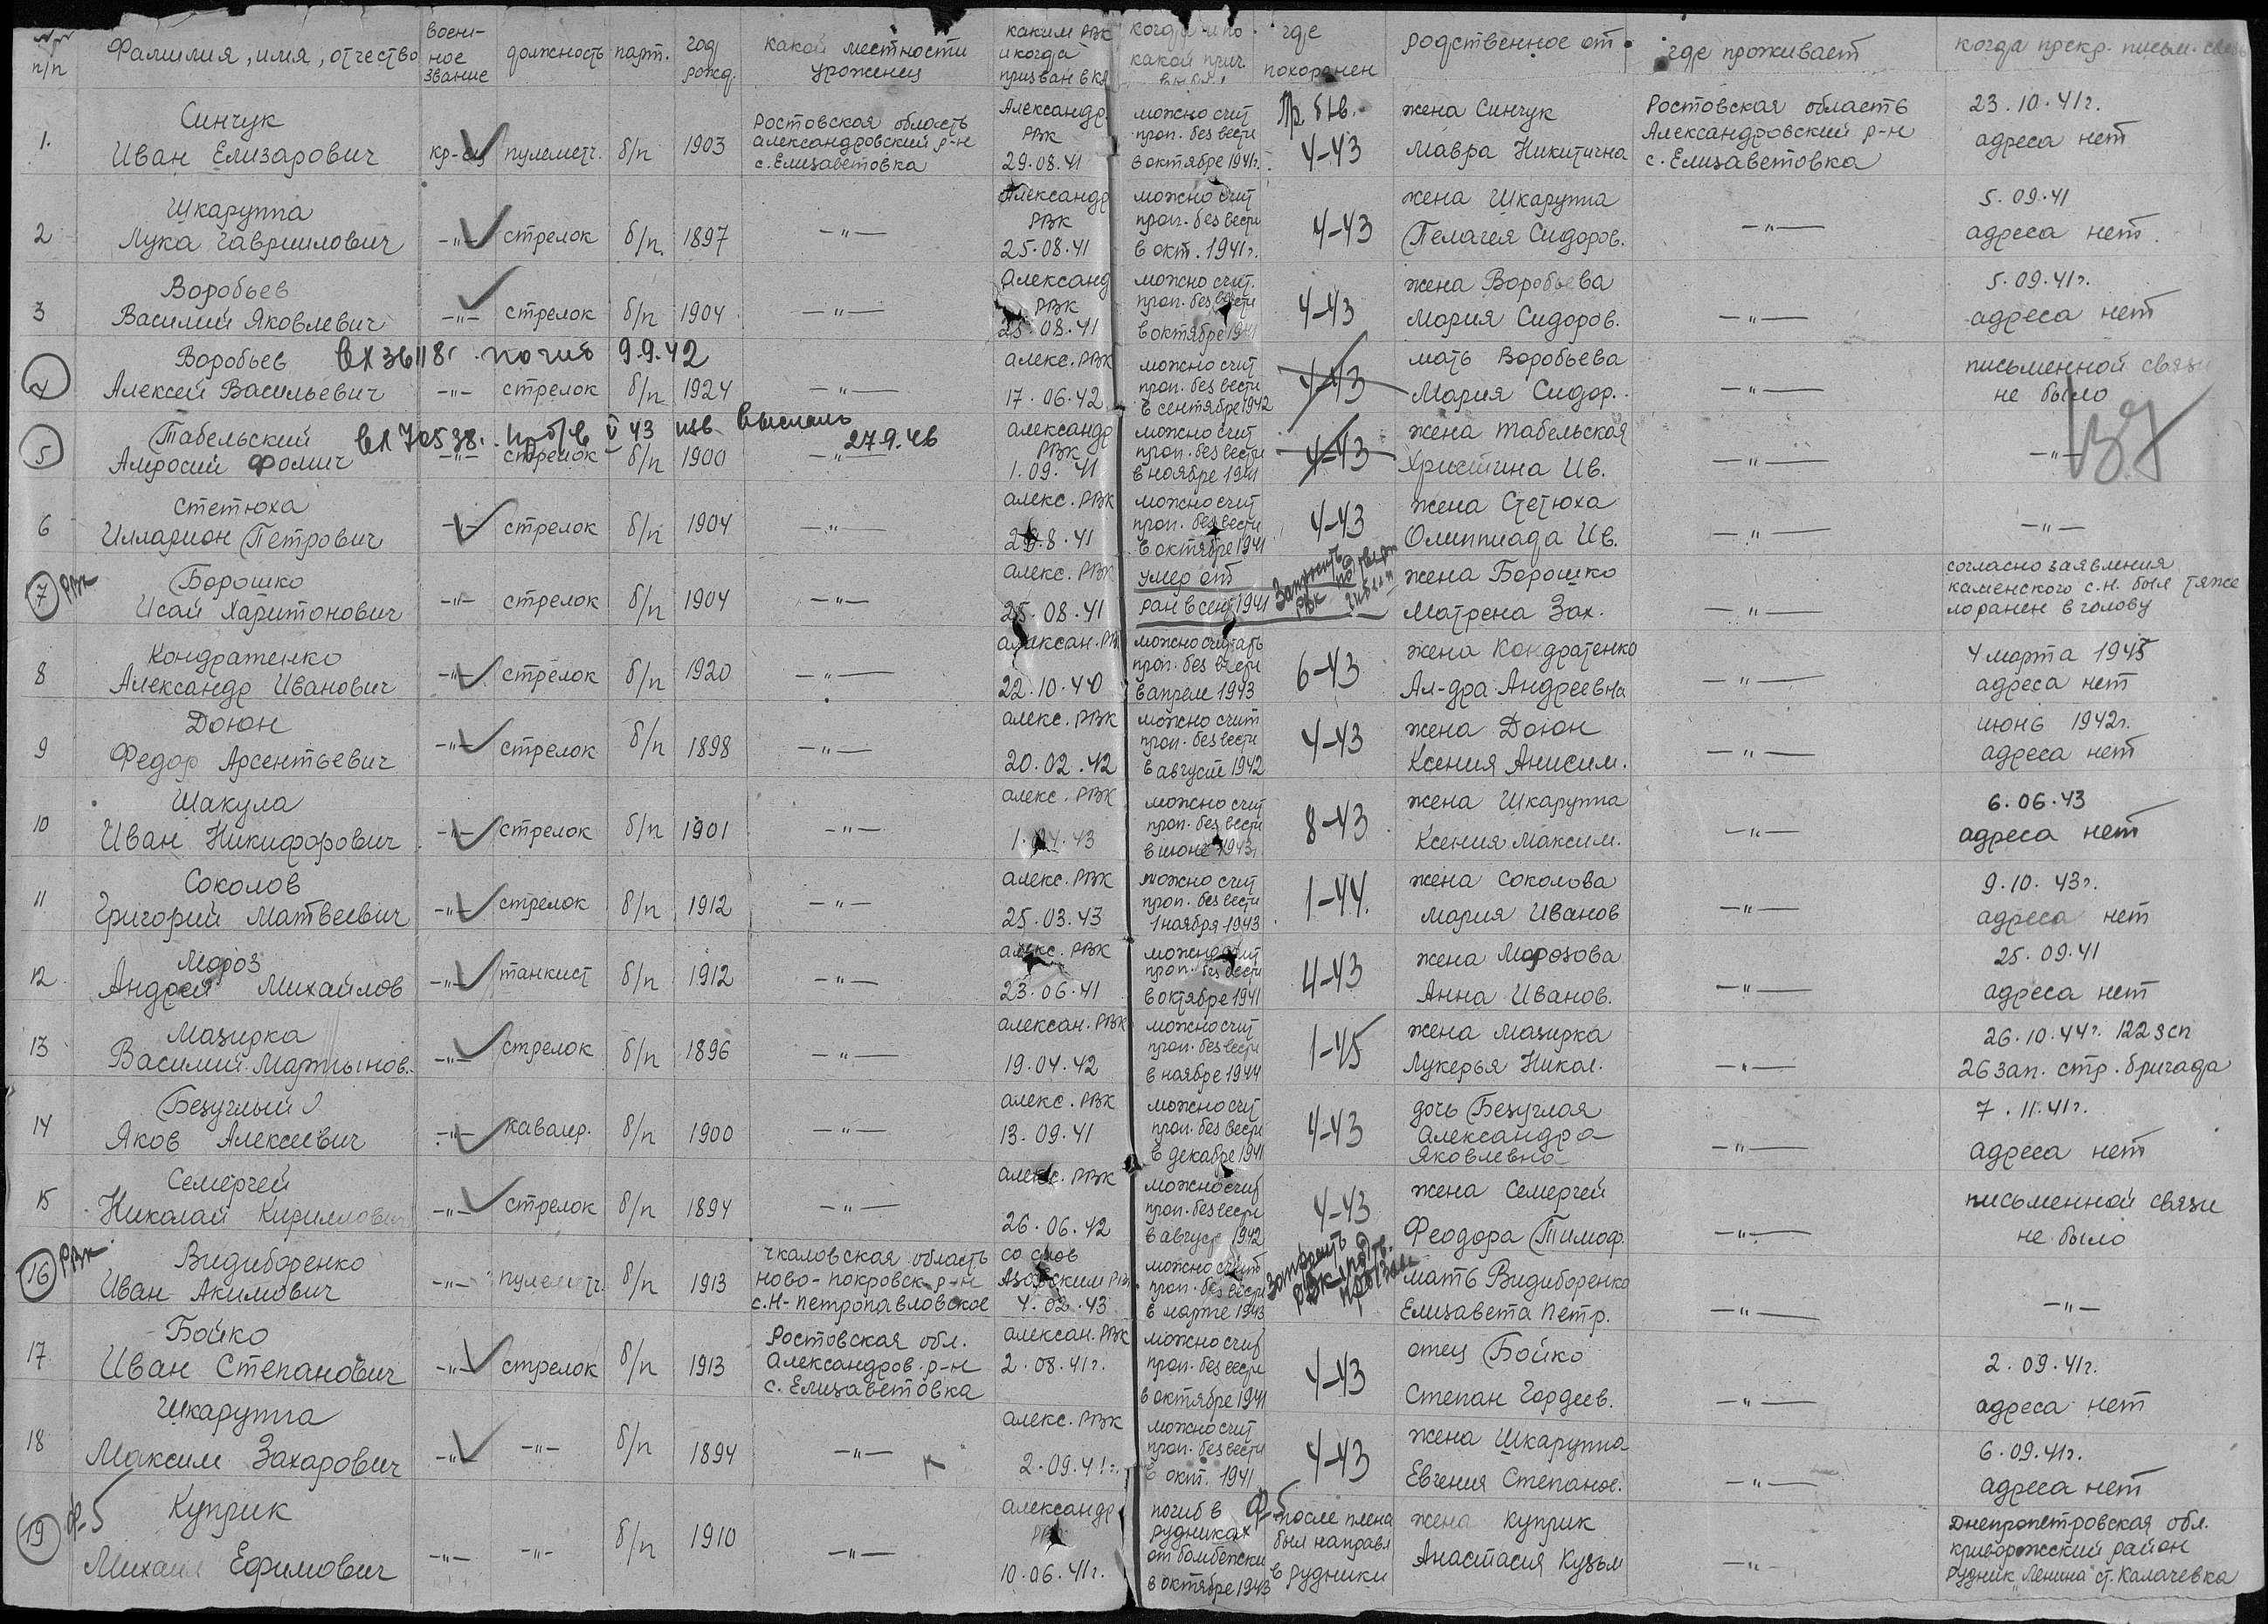 №№ п/п
Фамилия, имя, отчество
воен-ное звание
должность
парт.
год рожд.
какой местности уроженец
каким РВК и когда призван в КА
когда и по какой прич.
где похоронен
родственное от.
где проживает
когда прекр. письм. связь
1.
Синчук
Иван Елизарович
кр-ец
пулеметч.
б/п
1903
Ростовская область
Александровский р-н
с. Елизаветовка
Александр.
РВК
29.08.41
можно счит
проп. без вести
в октябре 1941г.
Пр. б/в.
4-43
жена Синчук
Мавра Никитична
Ростовская область
Александровский р-н
с. Елизаветовка
23.10.41г.
адреса нет
2
Шкаруппа
Лука Гавриилович
-"-
стрелок
б/п.
1897
-"-
Александр
РВК
25.08.41
можно счит
проп. без вести
в окт. 1941г.
4-43
жена Шкаруппа
Пелагея Сидоров.
-"-
5.09.41
адреса нет.
3
Воробьев
Василий Яковлевич
-"-
стрелок
б/п
1904
-"-
Александ
РВК
25.08.41
можно счит.
проп. без вести
в октябре 1941
4-43
жена Воробьева
Мария Сидоров.
-"-
5.09.41г.
адреса нет
4
Воробьев
вх 36118г. погиб 9.9.42
Алексей Васильевич
-"-
стрелок
б/п
1924
-"-
алекс. РВК
17.06.42
можно счит
проп. без вести
в сентябре 1942
4-43
мать Воробьева
Мария Сидор.
-"-
письменной связи
не было
5
Табельский
вх 70538. пр б/в V 43 изв. выслали
27.9.46
Амросий Фомич
-"-
стрелок
б/п
1900
-"-
александр
РВК
1.09.41
можно счит
проп. без вести
в ноябре 1941
4-43
жена Табельская
Христина Ив.
-"-
-"-
6
Стетюха
Илларион Петрович
-"-
стрелок
б/п
1904
-"-
алекс. РВК
8.41
можно счит
проп. без вести
в октябре 1941
4-43
жена Стетюха
Олиппиада Ив.
-"-
-"-
7
РВК
Борошко
Исай Харитонович
-"-
стрелок
б/п
1904
-"-
алекс. РВК
25.08.41
умер от
ран в сент 1941
Запросить
РВК
жена Борошко
Матрена Зах.
-"-
согласно заявления
каменского с.н. был тяже
ло ранен в голову
8
Кондратенко
Александр Иванович
-"-
стрелок
б/п
1920
-"-
алексан. РВК
22.10.40
можно считать
проп. без вести
в апреле 1943
6-43
жена Кондратенко
Ал-дра Андреевна
-"-
4 марта 1945
адреса нет
9
Доюн
Федор Арсентьевич
-"-
стрелок
б/п
1898
-"-
алекс. РВК
20.02.42
можно счит
проп. без вести
в августе 1942
4-43
жена Доюн
Ксения Анисим.
-"-
июнь 1942г.
адреса нет
10
Шакула
Иван Никифорович
-"-
стрелок
б/п
1901
-"-
алекс. РВК
можно счит
проп. без вести
в июне 1943г.
8-43
жена Шкаруппа
Ксения Максим.
-"-
6.06.43
адреса нет
11
Соколов
Григорий Матвеевич
-"-
стрелок
б/п
1912
-"-
алекс. РВК
25.03.43
можно счит
проп. без вести
1 ноября 1943
1-44.
жена Соколова
Мария Иванов
-"-
9.10.43г.
адреса нет
12
Мороз
Андрей Михайлов
-"-
танкист
б/п
1912
-"-
алекс. РВК
23.06.41
можно счит
проп. без вести
в октябре 1941
4-43
жена Морозова
Анна Иванов.
-"-
25.09.41
адреса нет
13
Мазирка
Василий Мартынов.
-"-
стрелок
б/п
1896
-"-
алексан. РВК
19.04.42
можно счит
проп. без вести
в ноябре 1944
1-45
жена Мазирка
Лукерья Никол.
-"-
26.10.44г. 122 зсп
26 зап. стр. бригада
14
Безуглый
Яков Алексеевич
-"-
кавалер.
б/п
1900
-"-
алекс. РВК
13.09.41
можно счит
проп. без вести
в декабре 1941
4-43
дочь Безуглая
Александра
Яковлевна
-"-
7.11.41г.
адреса нет
15
Семергей
Николай Кириллович
-"-
стрелок
б/п
1894
-"-
алекс. РВК
26.06.42
можно счит
проп. без вести
в августе 1942
4-43
жена Семергей
Феодора Тимоф.
-"-
письменной связи
не было
16
РВК
Видиборенко
Иван Акимович
-"-
пулеметч.
б/п
1913
Чкаловская область
Ново-Покровск. р-н
с. Н-Петропавловское
со слов
Азовским РВК
4.02.43
можно счит
проп. без вести
в марте 1943
Запросить
РВК подтв.
мать Видиборенко
Елизавета Петр.
-"-
-"-
17
Бойко
Иван Степанович
-"-
стрелок
б/п
1913
Ростовская обл.
Александров. р-н
с. Елизаветовка
алексан. РВК
2.08.41г.
можно счит
проп. без вести
в октябре 1941
4-43
отец Бойко
Степан Гордеев.
-"-
2.09.41г.
адреса нет
18
Шкаруппа
Максим Захарович
-"-
-"-
б/п
1894
-"-
алекс. РВК
2.09.41г.
можно счит
проп. без вести
в окт. 1941
4-43
жена Шкаруппа
Евгения Степанов.
-"-
6.09.41г.
адреса нет
19
ф-5
Куприк
Михаил Ефимович
-"-
-"-
б/п
1910
-"-
александр
РВК
10.06.41г.
погиб в
рудниках
от бомбежки
в октябре 1943
ф-5
после плена
был направл
в рудники
жена Куприк
Анастасия Кузьм
-"-
Днепропетровская обл.
криворожский район
рудник "Ленина" ст. Калачевка